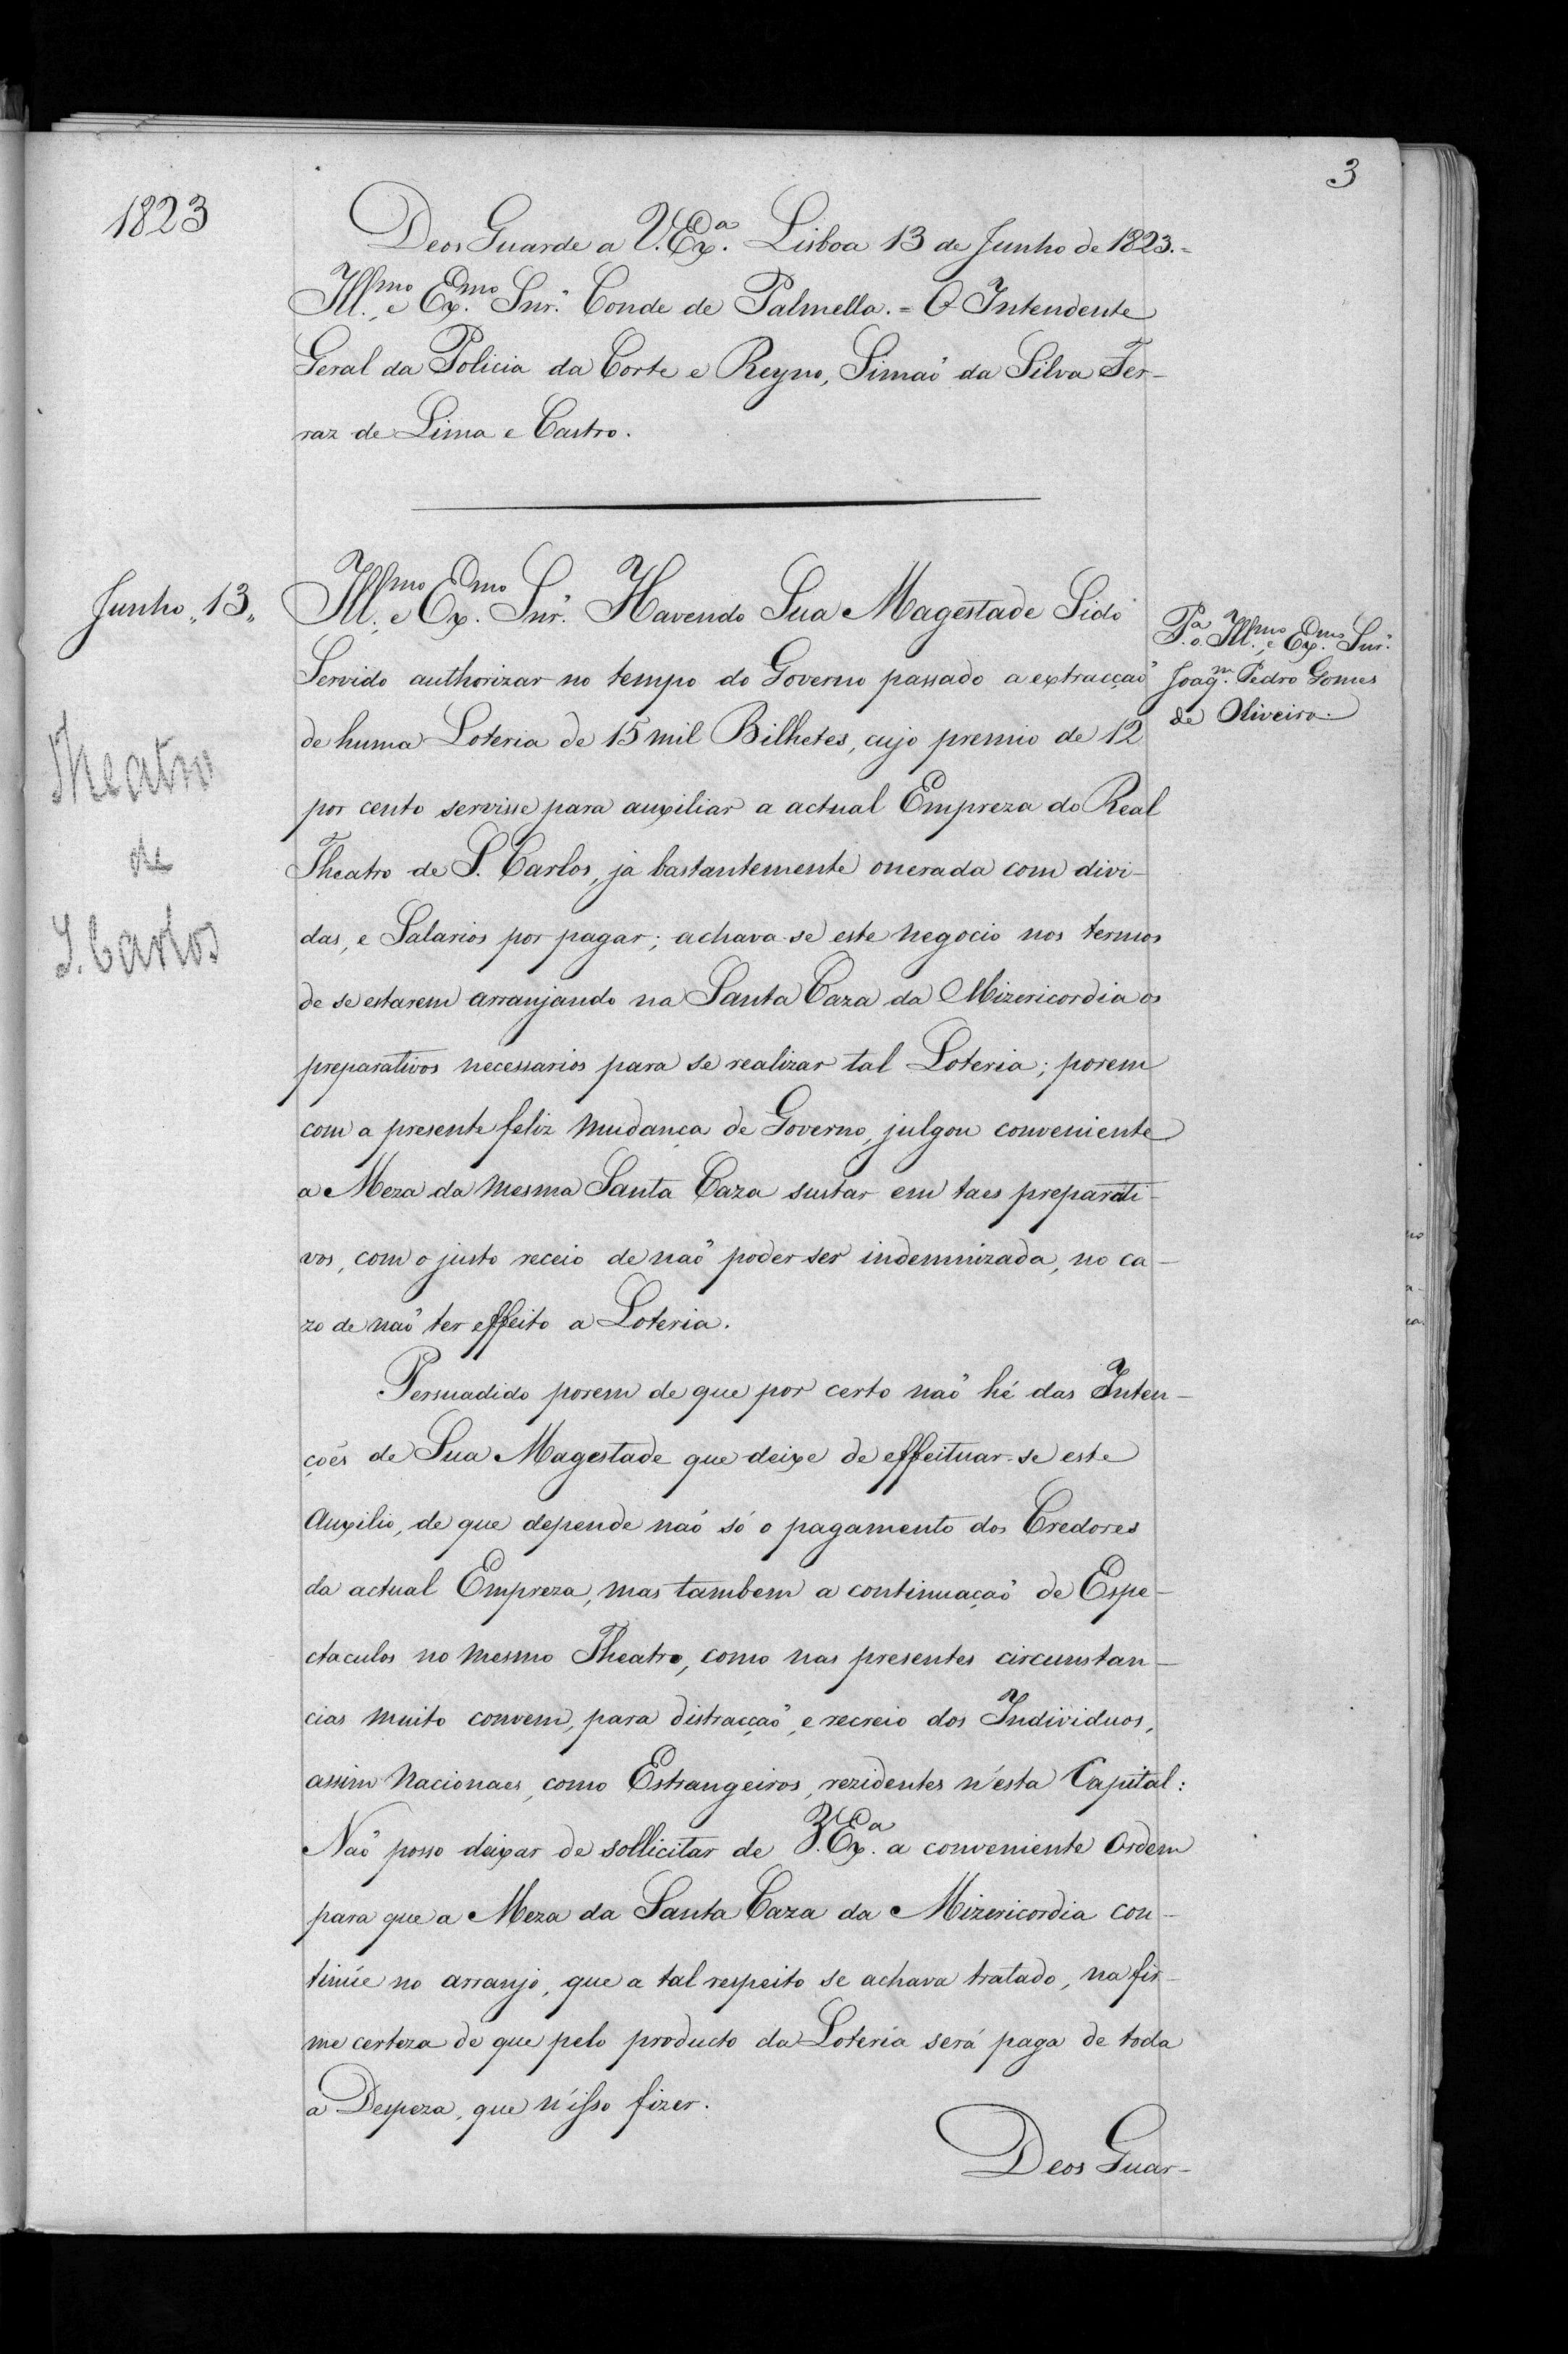 3
1823
Deos Guarde a V. Ex.ª Lisboa 13 de Junho de 1823.=
Ill.mo e Ex.mo Snr. Conde de Palmella. = O Intendente
Geral da Policia da Corte e Reyno, Simaõ da Silva Fer-
raz de Lima e Castro.
Junho „ 13 „
Ill.mo e Ex.mo Snr. Havendo Sua Magestade Sido
Servido authorizar no tempo do Governo passado a extracçaõ
de huma Loteria de 15 mil Bilhetes, cujo premio de 12
por cento servisse para auxiliar a actual Empreza do Real
Theatro de S. Carlos, já bastantemente onerada com divi-
das, e Salarios por pagar; achava-se este negocio nos termos
de se estarem arranjando na Santa Caza da Mizericordia os
preparativos necessarios para se realizar tal Loteria; porem
com a presente feliz mudança de Governo, julgou conveniente
a Meza da mesma Santa Caza sustar em taes preparati-
vos, com o justo receio de naõ poder ser indemnizada, no ca-
zo de naõ ter effeito a Loteria.
Persuadido porem de que por certo naõ hé das Inten-
çoẽs de Sua Magestade que deixe de effeituar-se este
Auxilio, de que depende naõ só o pagamento dos Credores
da actual Empreza, mas tambem a continuaçaõ de Espe-
ctaculos no mesmo Theatro, como nas presentes circunstan-
cias muito convem, para distracçaõ, e recreio dos Individuos,
assim Nacionaes, como Estrangeiros, rezidentes n'esta Capital:
Naõ posso deixar de sollicitar de V. Ex.ª a conveniente Ordem
para que a Meza da Santa Caza da Mizericordia con-
tinúe no arranjo, que a tal respeito se achava tratado, na fir-
me certeza de que pelo producto da Loteria será paga de toda
a Despeza, que n'isso fizer.
Deos Guar-
P.ª o Ill.mo e Ex.mo Snr.
Joaq.m Pedro Gomes
de Oliveira.
Theatro
de
S. Carlos